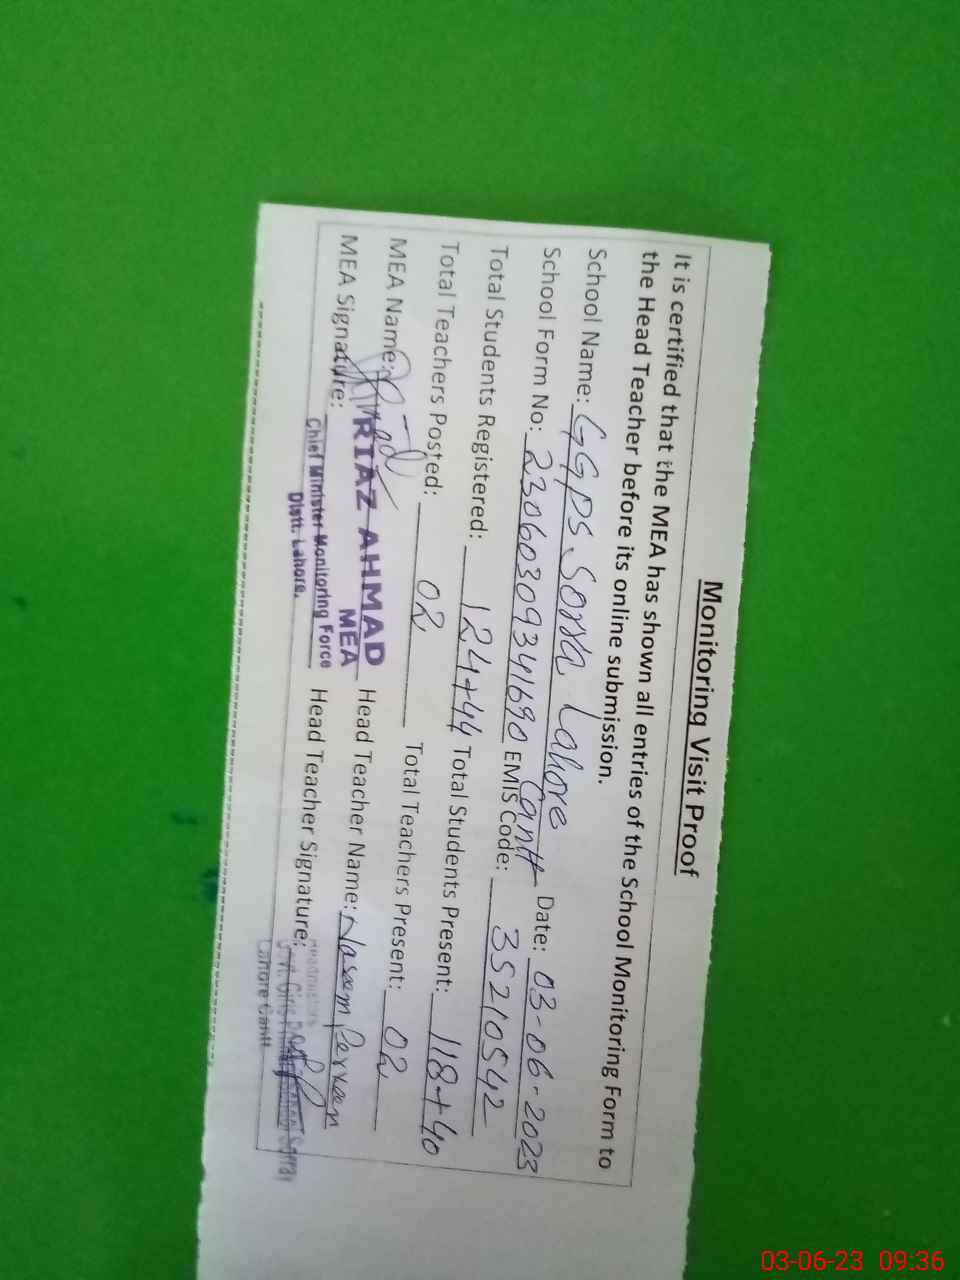 Monitoring Visit Proof
It is certified that the MEA has shown all entries of the School Monitoring Form to
the Head Teacher before its online submission.
School Name: GGPS Sorra Lahore Cantt Date: 03-06-2023
School Form No: 23060309341690 EMIS Code: 35210542
Total Students Registered: 124+44 Total Students Present: 118+40
Total Teachers Posted: 02 Total Teachers Present: 02
MEA Name: RIAZ AHMAD Head Teacher Name: Naseem Perveen
MEA
MEA Signature: Head Teacher Signature:
Chief Minister Monitoring Force
Distt. Lahore.
Headmistress
Govt. Girls School
Lahore Cantt
03-06-23 09:36